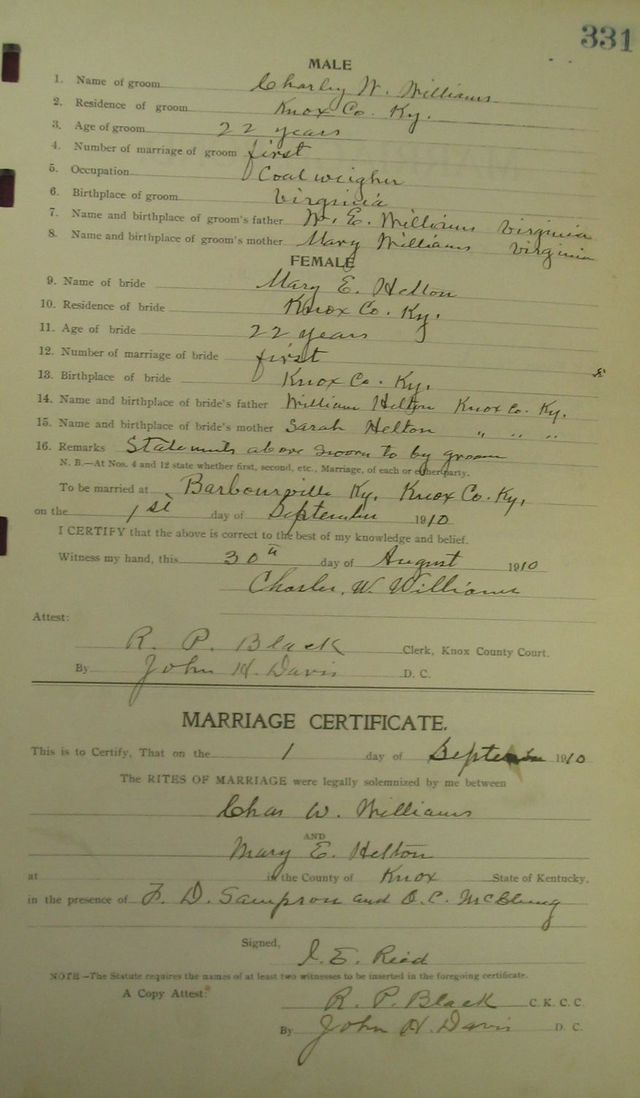 331
MALE
1. Name of groom Charley W. Williams
2. Residence of groom Knox Co. Ky.
3. Age of groom 22 years
4. Number of marriage of groom first
5. Occupation Coal weigher
6. Birthplace of groom Virginia
7. Name and birthplace of groom's father W. E. Williams Virginia
8. Name and birthplace of groom's mother Mary Williams Virginia
FEMALE
9. Name of bride Mary E. Helton
10. Residence of bride Knox Co. Ky.
11. Age of bride 22 years
12. Number of marriage of bride first
13. Birthplace of bride Knox Co. Ky.
14. Name and birthplace of bride's father William Helton Knox Co. Ky.
15. Name and birthplace of bride's mother Sarah Helton " " "
16. Remarks Statements above sworn to by groom
N. B.—At Nos. 4 and 12 state whether first, second, etc., Marriage, of each or either party.
To be married at Barbourville Ky, Knox Co. Ky,
on the 1st day of September 1910
I CERTIFY that the above is correct to the best of my knowledge and belief.
Witness my hand, this 30th day of August 1910
Charles, W. Williams
Attest:
R. P. Black Clerk, Knox County Court.
By John H. Davis D. C.
MARRIAGE CERTIFICATE.
This is to Certify, That on the 1 day of September 1910
The RITES OF MARRIAGE were legally solemnized by me between
Chas W. Williams
AND
Mary E. Helton
at in the County of Knox State of Kentucky,
in the presence of F. D. Sampson and O. C. McClung
Signed, I. E. Reed
NOTE—The Statute requires the names of at least two witnesses to be inserted in the foregoing certificate.
A Copy Attest: R. P. Black C. K. C. C.
By John H. Davis D. C.